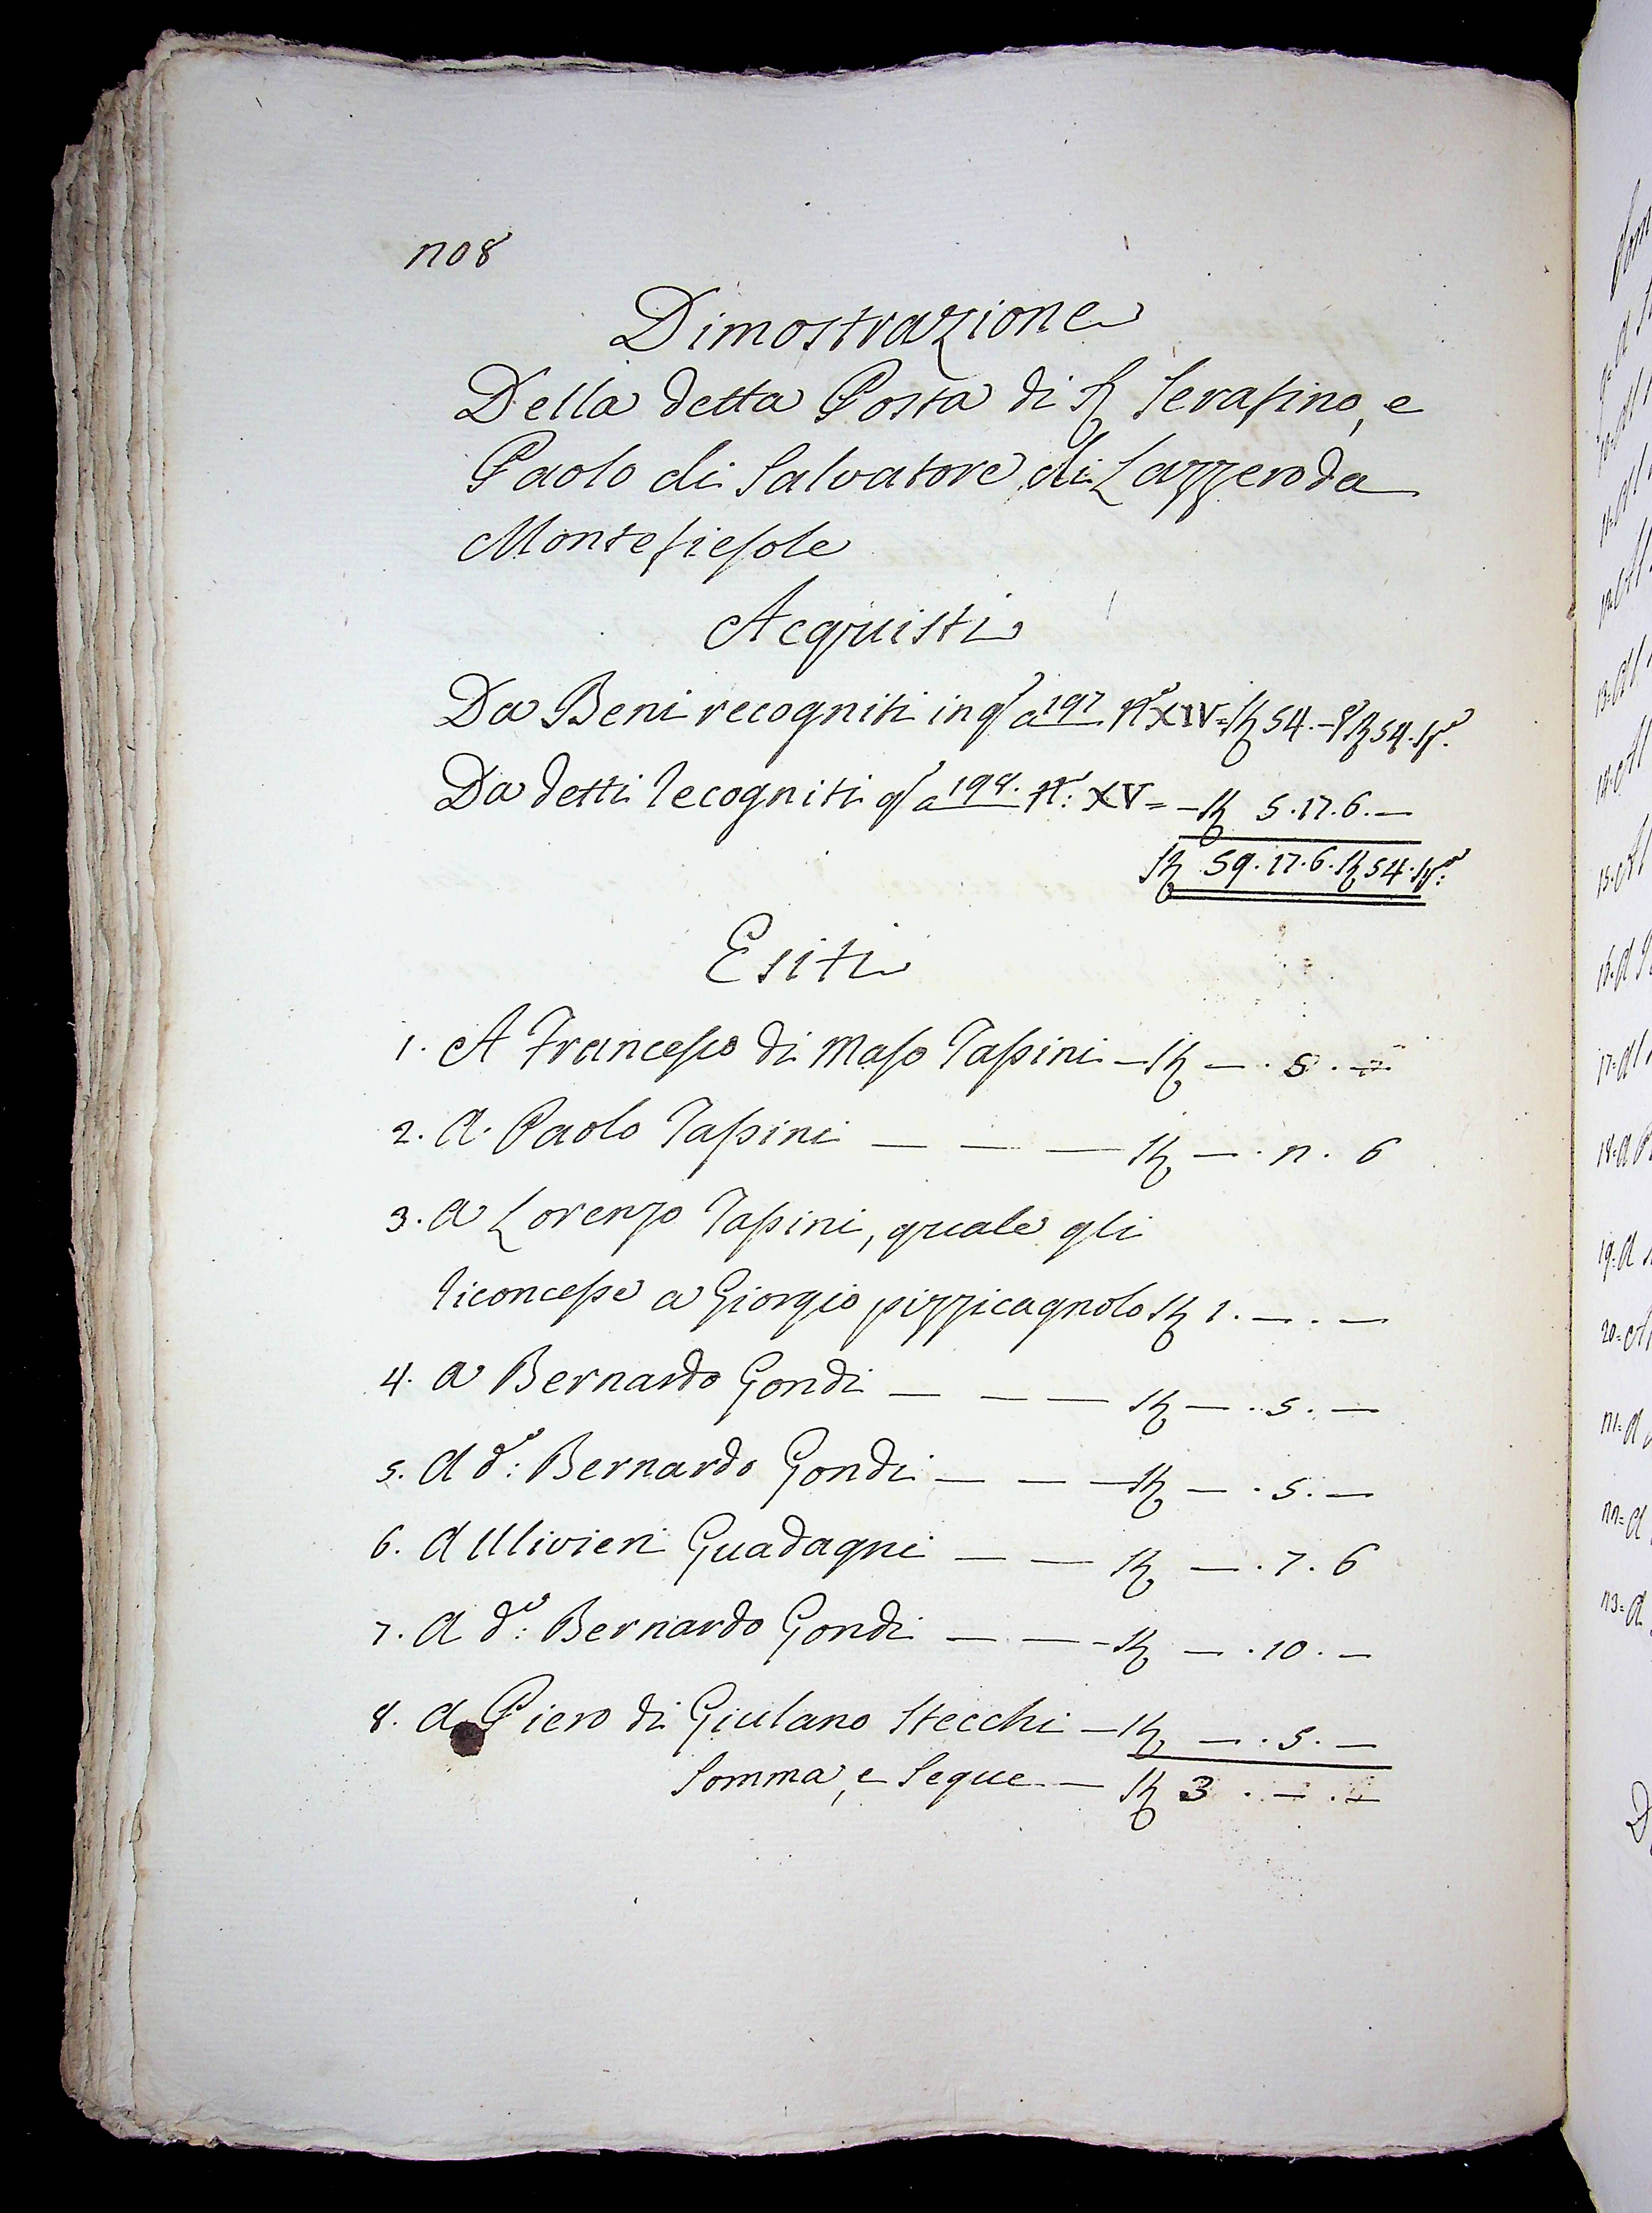 208
Dimostrazione
Della detta Posta di S. Serafino, e
Paolo di Salvatore di Lazzero da
Montefiesole
Acquisti
Da Beni recogniti in q. a 197 N.o XIV = 54. - 54.
Da detti recogniti q. a 198. N.o: XV = - 5.17.6. —
59.17.6. 54.
Esiti
1. A Francesco di Maso Tassini — — . 5 . —
2. A. Paolo Tassini — — — — . 2 . 6
3. A Lorenzo Tassini, quale gli
riconcesse a Giorgio pizzicagnolo 1. — . —
4. A Bernardo Gondi — — — — . 5 . —
5. A d.o: Bernardo Gondi — — — — . 5 . —
6. A Ulivieri Guadagni — — — . 7 . 6
7. A d.o: Bernardo Gondi — — — — . 10 . —
8. A Piero di Giulano Stecchi — — . 5 . —
Somma, e Segue — 3 . — . —